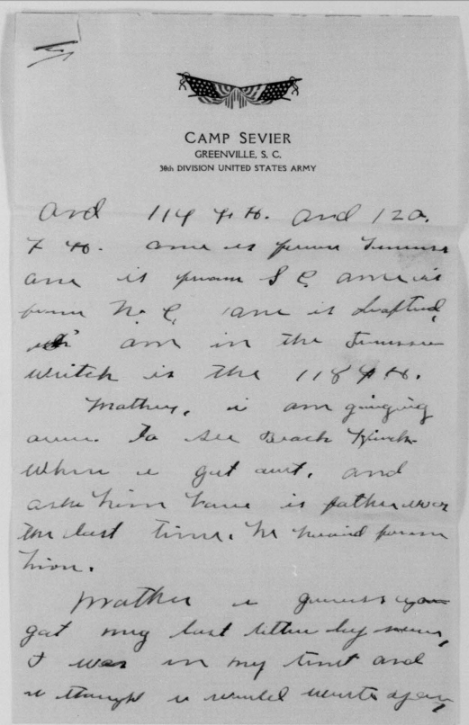 CAMP SEVIER
GREENVILLE, S. C.
30th DIVISION UNITED STATES ARMY
and 114 F H. and 120.
F H. one is from
one is from S C one is
from N. C. one is
am in the
is the 118 F H.
Mother, i am
over To see
When i get out, and
ask him how is father was
the last time. he heard from
him.
Mother i guess you
got my last letter by now,
I was in my tent and
i thought i would write again,